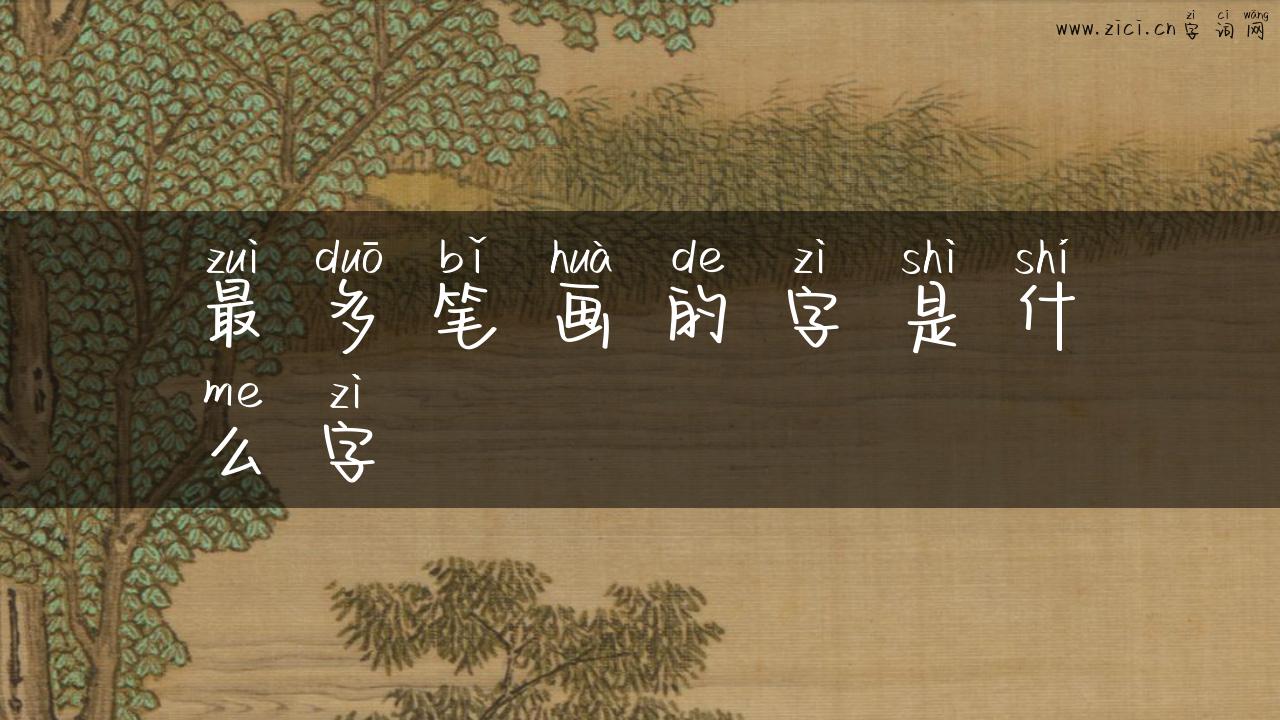 zì cí wǎng
www.zici.cn 字词网
zuì duō bǐ huà de zì shì shí
最多笔画的字是什
me zì
么字